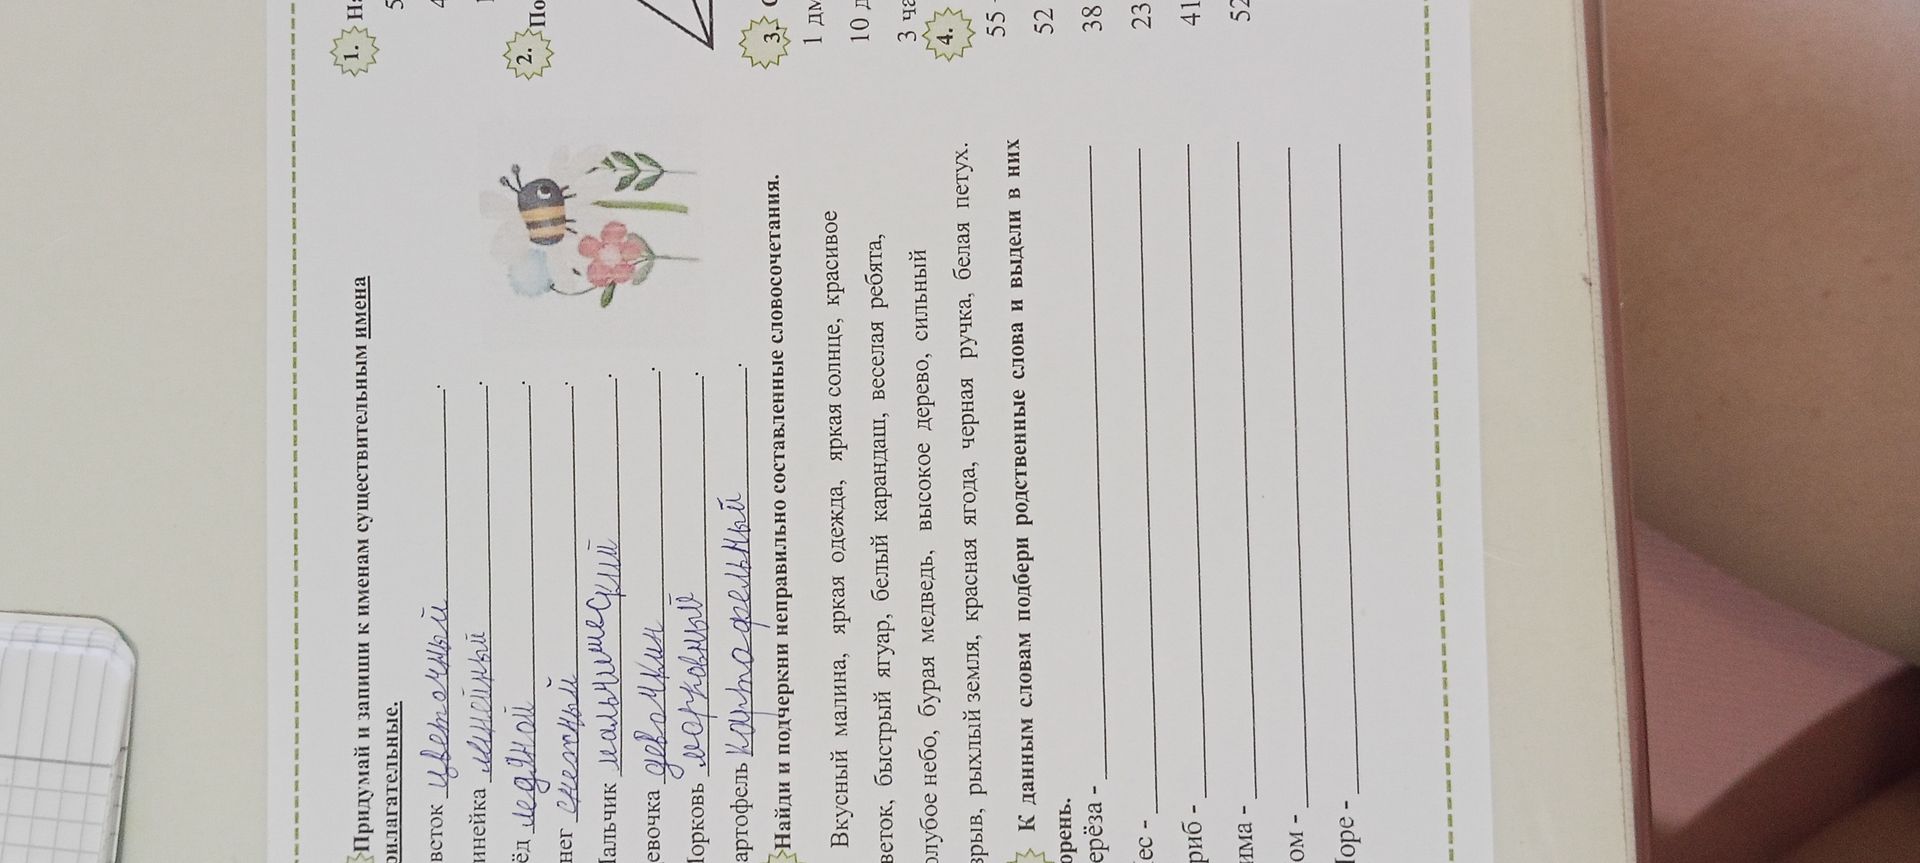 Придумай и запиши к именам существительным имена
рилагательные.
веток цветочный.
инейка линейный.
ёд
нег снежный.
альчик мальчишеский.
евочка девочкин.
орковь морковный.
артофель картофельный.
Найди и подчеркни неправильно составленные словосочетания.
Вкусный малина, яркая одежда, яркая солнце, красивое
веток, быстрый ягуар, белый карандаш, веселая ребята,
олубое небо, бурая медведь, высокое дерево, сильный
зрыв, рыхлый земля, красная ягода, черная ручка, белая петух.
К данным словам подбери родственные слова и выдели в них
орень.
ерёза -
ес -
риб -
има -
ом -
оре -
1. На
5
4
2. По
3.
1 дм
10 д
3 ча
4.
55
52
38
23
41
52